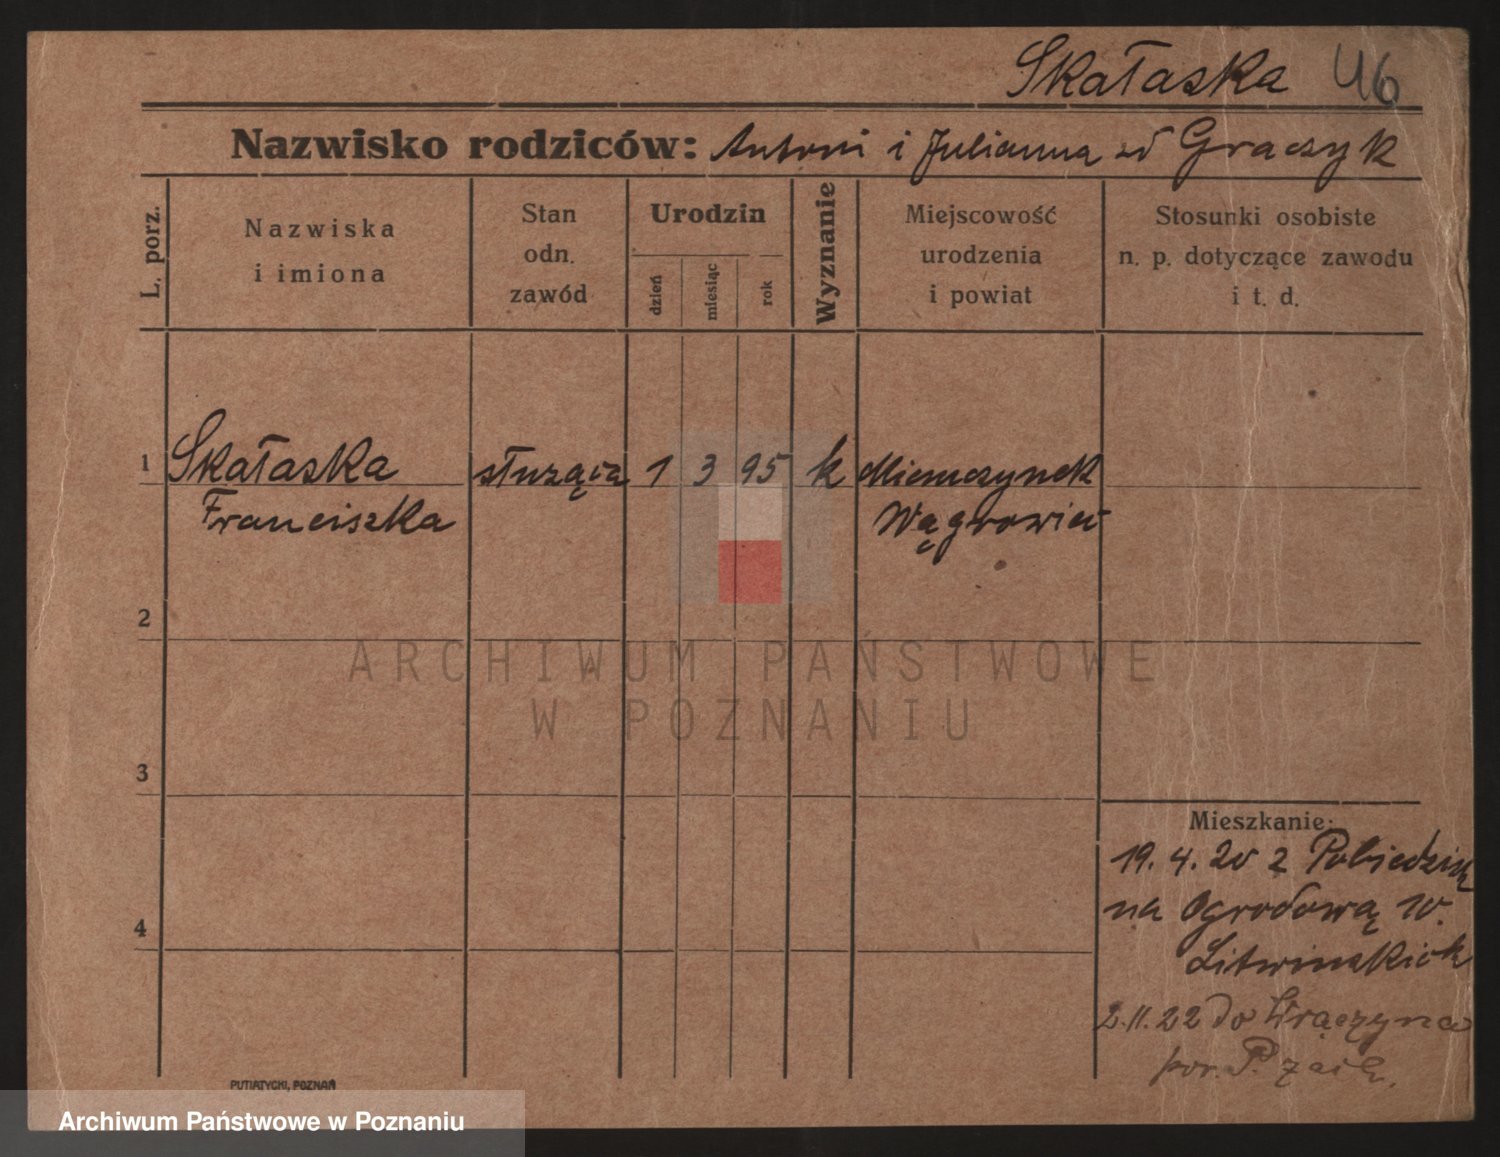 Skałaska 46
Nazwisko rodziców: Antoni i Julianna zd Graczyk
L. porz.
Nazwiska
i imiona
Stan
odn.
zawód
Urodzin
dzień
miesiąc
rok
Wyznanie
Miejscowość
urodzenia
i powiat
Stosunki osobiste
n. p. dotyczące zawodu
i t. d.
1 Skałaska służąca 1 3 95 k Miemczynek
Franciszka Wągrowiec
2
3
4
Mieszkanie:
19. 4. 20 z Pobiedzisk
na Ogrodową 10.
Litwinskich
2. 11. 22 do Wrączyna
pow. P. zach.
PUTIATYCKI, POZNAŃ
ARCHIWUM PAŃSTWOWE
W POZNANIU
Archiwum Państwowe w Poznaniu